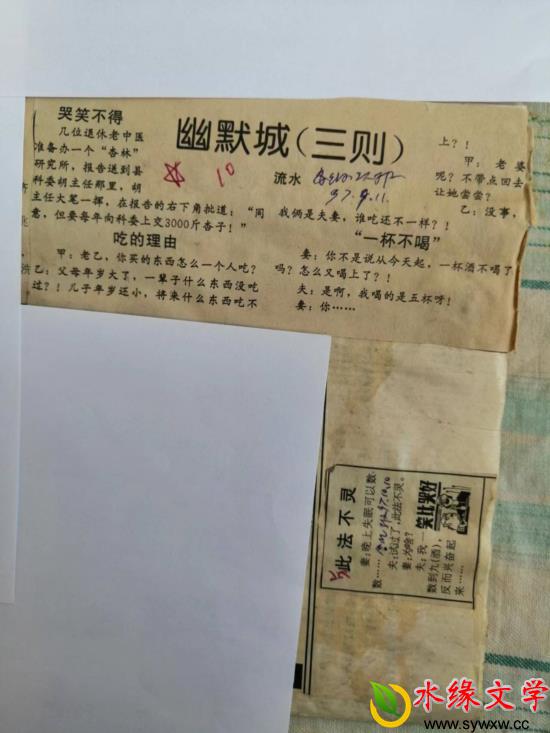 幽默城(三则)
流水
97.9.11.
10
哭笑不得
几位退休老中医
准备办一个“杏林”
研究所，报告送到县
科委胡主任那里，胡
主任大笔一挥，在报告的右下角批道：“同
意，但要每年向科委上交3000斤杏子！”
吃的理由
甲：老乙，你买的东西怎么一个人吃？
乙：父母年岁大了，一辈子什么东西没吃
过？！儿子年岁还小，将来什么东西吃不
上？！
甲：老婆
呢？不带点回去
让她尝尝？
乙：没事，
我俩是夫妻，谁吃还不一样？！
“一杯不喝”
妻：你不是说从今天起，一杯酒不喝了
吗？怎么又喝上了？！
夫：是啊，我喝的是五杯呀！
妻：你……
笑比哭好
此法不灵
妻：晚上失眠可以数
数……
夫：试过了，此法不灵。
妻：为啥？
夫：我一
数到九(酒)，
反而兴奋起
来……
水缘文学
www.sywxw.com